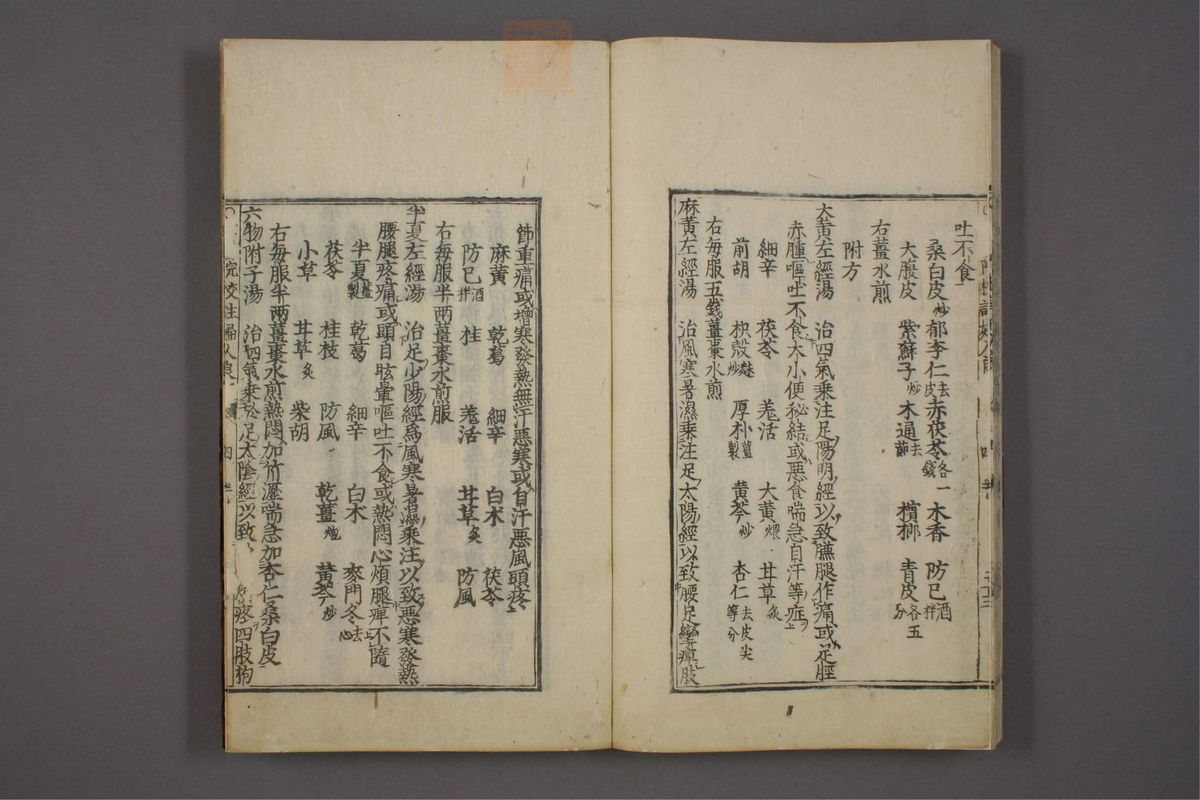 吐不食
桑白皮炒 郁李仁去皮 赤茯苓各一錢 木香 防已酒拌
大腹皮 紫蘇子炒 木通去節 檳榔 青皮各五分
右薑水煎
附方
大黃左經湯 治四氣乗注足陽明經以致腰腿作痛或足脛
赤腫嘔吐不食大小便秘結或惡食喘急自汗等症
細辛 茯苓 羗活 大黃煨 甘草炙
前胡 枳殼麩炒 厚朴薑製 黄芩炒 杏仁去皮尖等分
右毎服五錢薑棗水煎
麻黃左經湯 治風寒暑濕乗注足太陽經以致腰足攣痺肢
節重痛或增寒發熱無汗惡寒或自汗惡風頭疼
麻黃 乾葛 細辛 白朮 茯苓
防已酒拌 桂 羗活 甘草炙 防風
右毎服半兩薑棗水煎服
半夏左經湯 治足少陽經爲風寒暑濕乗注以致惡寒發熱
腰腿疼痛或頭目眩暈嘔吐不食或熱悶心煩腿痺不隨
半夏薑製 乾葛 細辛 白朮 麥門冬去心
茯苓 桂枝 防風 乾薑炮 黃芩炒
小草 甘草炙 柴胡
右毎服半兩薑棗水煎熱悶加竹瀝喘急加杏仁桑白皮
六物附子湯 治四氣乗於足太陰經以致 疼四肢拘
院校註婦人良 四